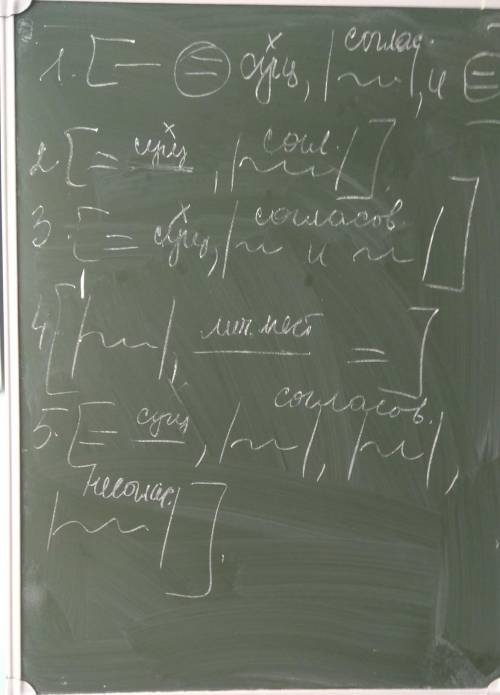 1. [— = сущ, |соглас.|, и =
2. [= сущ, |согл.|].
3. [= сущ, |согласов. и|]
4. [| |, лич. мест =]
5. [= сущ, | |, |согласов.|,
|несоглас.|].